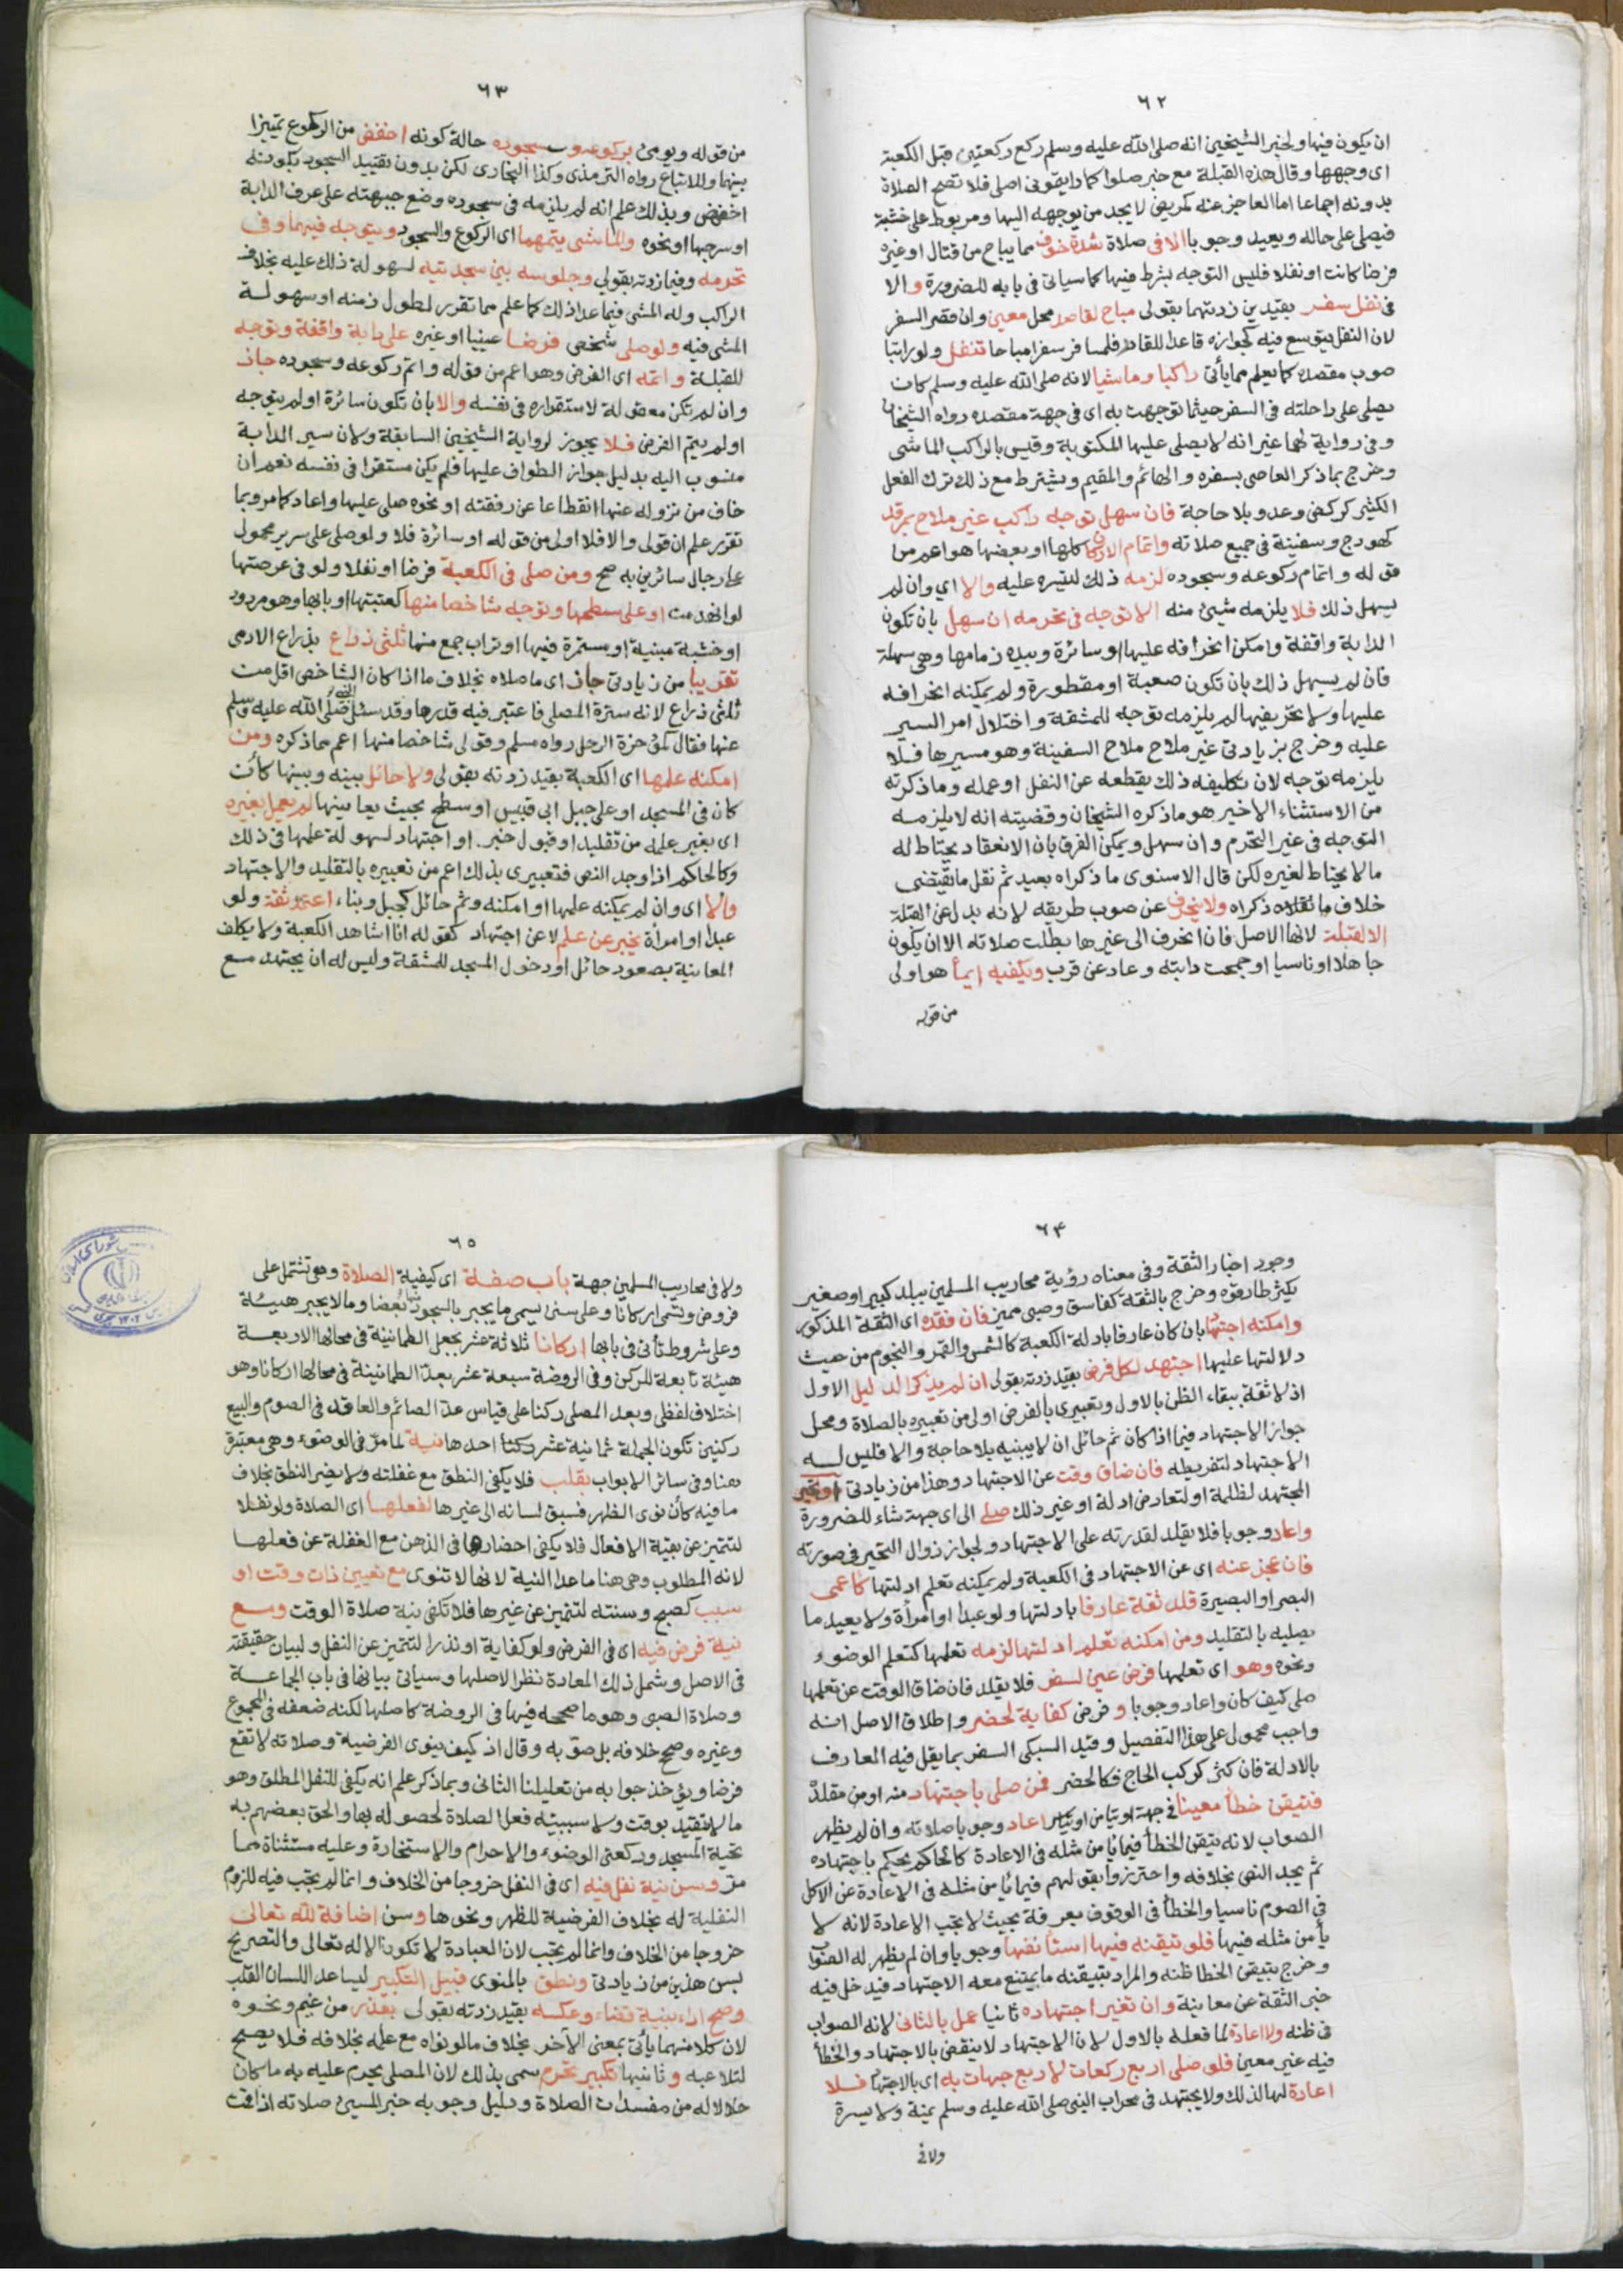 ٦٢
ان يكون فيها ولخبر الشيخين انه صلى الله عليه وسلم ركع ركعتين قبل الكعبة
اى وجهها وقال هذه القبلة مع خبر صلوا كما رايتمونى اصلى فلا تصح الصلاة
بدونه اجماعا اما العاجز عنه كمريض لا يجد من يوجهه اليها ومربوط على خشبة
فيصلى على حاله ويعيد وجوبا الا فى صلاة شدة خوف مما يباح من قتال او غيره
فرضا كانت او نفلا فليس التوجه بشرط فيها كما سياتى فى بابه للضرورة والا
فى نفل سفر بقيدين زدتهما بقولى مباح لقاصد محل معين وان قصر السفر
لان النفل يتوسع فيه كجوازه قاعدا للقادر فلمسافر سفرا مباحا تنفل ولو راتبا
صوب مقصده كما يعلم مما يأتى راكبا وماشيا لانه صلى الله عليه وسلم كان
يصلى على راحلته فى السفر حيثما توجهت به اى فى جهة مقصده رواه الشيخان
وفى رواية لهما غير انه لا يصلى عليها المكتوبة وقيس بالراكب الماشى
وخرج بما ذكر العاصى بسفره والهائم والمقيم ويشترط مع ذلك ترك الفعل
الكثير كركض وعدو بلا حاجة فان سهل توجه راكب غير ملاح بمرقد
كهودج وسفينة فى جميع صلاته واتمام الاركان كلها او بعضها هو اعم من
قوله واتمام ركوعه وسجوده لزمه ذلك لتيسره عليه والا اى وان لم
يسهل ذلك فلا يلزمه شيئ منه الا توجه فى تحرمه ان سهل بان تكون
الدابة واقفة وامكن انحرافه عليها او سائرة وبيده زمامها وهى سهلة
فان لم يسهل ذلك بان تكون صعبة او مقطورة ولم يمكنه انحرافه
عليها ولا تحريفها لم يلزمه توجه للمشقة واختلال امر السير
عليه وخرج بزيادتى غير ملاح ملاح السفينة وهو مسيرها فلا
يلزمه توجه لان تكليفه ذلك يقطعه عن النفل او عمله وما ذكرته
من الاستثناء الاخير هو ما ذكره الشيخان وقضيته انه لا يلزمه
التوجه فى غير التحرم وان سهل ويمكن الفرق بان الانعقاد يحتاط له
ما لا يحتاط لغيره لكن قال الاسنوى ما ذكراه بعيد ثم نقل ما يقتضى
خلاف ما ذكراه ولا ينحرف عن صوب طريقه لانه بدل عن القبلة
الا لقبلة لانها الاصل فان انحرف الى غيرها بطلت صلاته الا ان يكون
جاهلا او ناسيا او جمحت دابته وعاد عن قرب ويكفيه ايماء هو اولى
من قوله
٦٣
من قوله ويومى بركوعه وسجوده حالة كونه اخفض من الركوع تمييزا
بينهما وللاتباع رواه الترمذى وكذا البخارى لكن بدون تقييد السجود بكونه
اخفض وبذلك علم انه لم يلزمه فى سجوده وضع جبهته على عرف الدابة
او سرجها او نحوه والماشى يتمهما اى الركوع والسجود ويتوجه فيهما وفى
تحرمه وفيما زدته بقولى وجلوسه بين سجدتيه لسهولة ذلك عليه بخلاف
الراكب وله المشى فيما عدا ذلك كما علم مما تقرر لطول زمنه او سهولة
المشى فيه ولو صلى شخص فرضا عينيا او غيره على دابة واقفة وتوجه
للقبلة واتمه اى الفرض وهو اعم من قوله واتم ركوعه وسجوده جاز
وان لم تكن معقولة لاستقراره فى نفسه والا بان تكون سائرة او لم يتوجه
او لم يتم الفرض فلا يجوز لرواية الشيخين السابقة ولان سير الدابة
منسوب اليه بدليل جواز الطواف عليها فلم يكن مستقرا فى نفسه نعم ان
خاف من نزوله عنها انقطاعا عن رفقته او نحوه صلى عليها واعاد كما مر وبما
تقرر علم ان قولى والا فلا اولى من قوله او سائرة فلا ولو صلى على سرير محمول
على رجال سائرين به صح ومن صلى فى الكعبة فرضا او نفلا ولو فى عرصتها
لو انهدمت او على سطحها وتوجه شاخصا منها كعتبتها او بابها وهو مردود
او خشبة مبنية او مسمرة فيها او تراب جمع منها ثلثى ذراع بذراع الادمى
تقريبا من زيادتى جاز اى ما صلاه بخلاف ما اذا كان الشاخص اقل من
ثلثى ذراع لانه سترة المصلى فاعتبر فيه قدرها وقد سئل النبى صلى الله عليه وسلم
عنها فقال كمؤخرة الرحل رواه مسلم وقولى شاخصا منها اعم مما ذكره ومن
امكنه علمها اى الكعبة بقيد زدته بقولى ولا حائل بينه وبينها كأن
كان فى المسجد او على جبل ابى قبيس او سطح بحيث يعاينها لم يعمل بغيره
اى بغير علمه من تقليد او قبول خبر او اجتهاد لسهولة علمها فى ذلك
وكالحاكم اذا وجد النص فتعبيرى بذلك اعم من تعبيره بالتقليد والاجتهاد
والا اى وان لم يمكنه علمها او امكنه وثم حائل كجبل وبناء اعتمد ثقة ولو
عبدا او امرأة يخبر عن علم لا عن اجتهاد كقوله انا اشاهد الكعبة ولا يكلف
المعاينة بصعود حائل او دخول المسجد للمشقة وليس له ان يجتهد مع
٦٤
وجود اخبار الثقة وفى معناه رؤية محاريب المسلمين ببلد كبير او صغير
يكثر طارقوه وخرج بالثقة كفاسق وصبى مميز فان فقده اى الثقة المذكور
وامكنه اجتهاد بان كان عارفا بادلة الكعبة كالشمس والقمر والنجوم من حيث
دلالتها عليها اجتهد لكل فرض بقيد زدته بقولى ان لم يذكر الدليل الاول
اذ لا ثقة ببقاء الظن بالاول وتعبيرى بالفرض اولى من تعبيره بالصلاة ومحل
جواز الاجتهاد فيما اذا كان ثم حائل ان لا يبنيه بلا حاجة والا فليس له
الاجتهاد لتفريطه فان ضاق وقت عن الاجتهاد وهذا من زيادتى او تحير
المجتهد لظلمة او لتعارض ادلة او غير ذلك صلى الى اى جهة شاء للضرورة
واعاد وجوبا فلا يقلد لقدرته على الاجتهاد ولجواز زوال التحير فى صورته
فان عجز عنه اى عن الاجتهاد فى الكعبة ولم يمكنه تعلم ادلتها كاعمى
البصر او البصيرة قلد ثقة عارفا بادلتها ولو عبدا او امرأة ولا يعيد ما
يصليه بالتقليد ومن امكنه تعلم ادلتها لزمه تعلمها كتعلم الوضوء
ونحوه وهو اى تعلمها فرض عين لسفر فلا يقلد فان ضاق الوقت عن تعلمها
صلى كيف كان واعاد وجوبا وفرض كفاية لحضر واطلاق الاصل انه
واجب محمول على هذا التفصيل وقيد السبكى السفر بما يقل فيه العارف
بالادلة فان كثر كركب الحاج فكالحضر فمن صلى باجتهاد منه او من مقلده
فتيقن خطأ معينا فى جهة او تيامن او تياسر اعاد وجوبا صلاته وان لم يظهر
الصواب لانه تيقن الخطأ فيما يأمن مثله فى الاعادة كالحاكم يحكم باجتهاده
ثم يجد النص بخلافه واحترزوا بقولهم فيما يأمن مثله فى الاعادة عن الاكل
فى الصوم ناسيا والخطأ فى الوقوف بعرفة بحيث لا تجب الاعادة لانه لا
يأمن مثله فيها فلو تيقنه فيها استأنفها وجوبا وان لم يظهر له الصواب
وخرج بتيقن الخطا ظنه والمراد بتيقنه ما يمتنع معه الاجتهاد فيدخل فيه
خبر الثقة عن معاينة وان تغير اجتهاده ثانيا عمل بالثانى لانه الصواب
فى ظنه ولا اعادة لما فعله بالاول لان الاجتهاد لا ينقض بالاجتهاد والخطأ
فيه غير معين فلو صلى اربع ركعات لاربع جهات به اى بالاجتهاد فلا
اعادة لها لذلك ولا يجتهد فى محراب النبى صلى الله عليه وسلم يمنة ولا يسرة
ولا فى
٦٥
ولا فى محاريب المسلمين جهة باب صفة اى كيفية الصلاة وهى تشتمل على
فروض وتسمى اركانا وعلى سنن يسمى ما يجبر بالسجود منها بعضا وما لا يجبر هيئة
وعلى شروط تأتى فى بابها اركانها ثلاثة عشر بجعل الطمانينة فى محالها الاربعة
هيئة تابعة للركن وفى الروضة سبعة عشر بعد الطمانينة فى محالها اركانا وهو
اختلاف لفظى وبعد المصلى ركنا على قياس عد الصائم والعاقد فى الصوم والبيع
ركنين تكون الجملة ثمانية عشر ركنا احدها نية لما مر فى الوضوء وهى معتبرة
هنا وفى سائر الابواب بقلب فلا يكفى النطق مع غفلته ولا يضر النطق بخلاف
ما فيه كأن نوى الظهر فسبق لسانه الى غيرها لفعلها اى الصلاة ولو نفلا
لتتميز عن بقية الافعال فلا يكفى احضارها فى الذهن مع الغفلة عن فعلها
لانه المطلوب وهى هنا ما عدا النية لانها لا تنوى مع تعيين ذات وقت او
سبب كصبح وسنته لتتميز عن غيرها فلا تكفى نية صلاة الوقت ومع
نية فرض فيه اى فى الفرض ولو كفاية او نذرا لتتميز عن النفل ولبيان حقيقته
فى الاصل وشمل ذلك المعادة نظرا لاصلها وسياتى بيانها فى باب الجماعة
وصلاة الصبى وهو ما صححه فيها فى الروضة كاصلها لكنه ضعفه فى المجموع
وغيره وصحح خلافه بل صوبه وقال اذ كيف ينوى الفرضية وصلاته لا تقع
فرضا ويؤخذ جوابه من تعليلنا الثانى وبما ذكر علم انه يكفى للنفل المطلق وهو
ما لا يتقيد بوقت ولا سبب نية فعل الصلاة لحصوله بها والحق بعضهم به
تحية المسجد وركعتى الوضوء والاحرام والاستخارة وعليه مستثناة مما
مر وسن نية نفل فيه اى فى النفل خروجا من الخلاف وانما لم تجب فيه للزوم
النفلية له بخلاف الفرضية للظهر ونحوها وسن اضافة لله تعالى
خروجا من الخلاف وانما لم تجب لان العبادة لا تكون الا له تعالى والتصريح
بسن هذين من زيادتى ونطق بالمنوى قبيل التكبير ليساعد اللسان القلب
وصح اداء بنية قضاء وعكسه بقيد زدته بقولى بعذر من غيم ونحوه
لان كلا منهما يأتى بمعنى الآخر بخلاف ما لو نواه مع علمه بخلافه فلا يصح
لتلاعبه وثانيها تكبير تحرم سمى بذلك لان المصلى يحرم عليه به ما كان
حلالا له من مفسدات الصلاة ودليل وجوبه خبر المسيئ صلاته اذا قمت